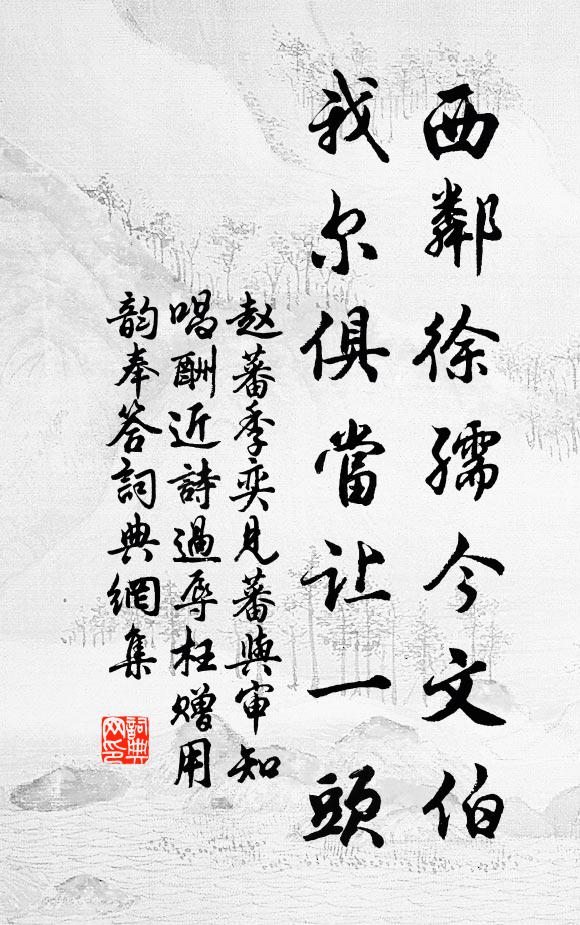 西鄰徐孺今文伯
我尔俱當让一頭
赵蕃季奕見蕃與审知
唱酬近詩過辱枉赠用
韵奉答詞典網集
詞典
网印